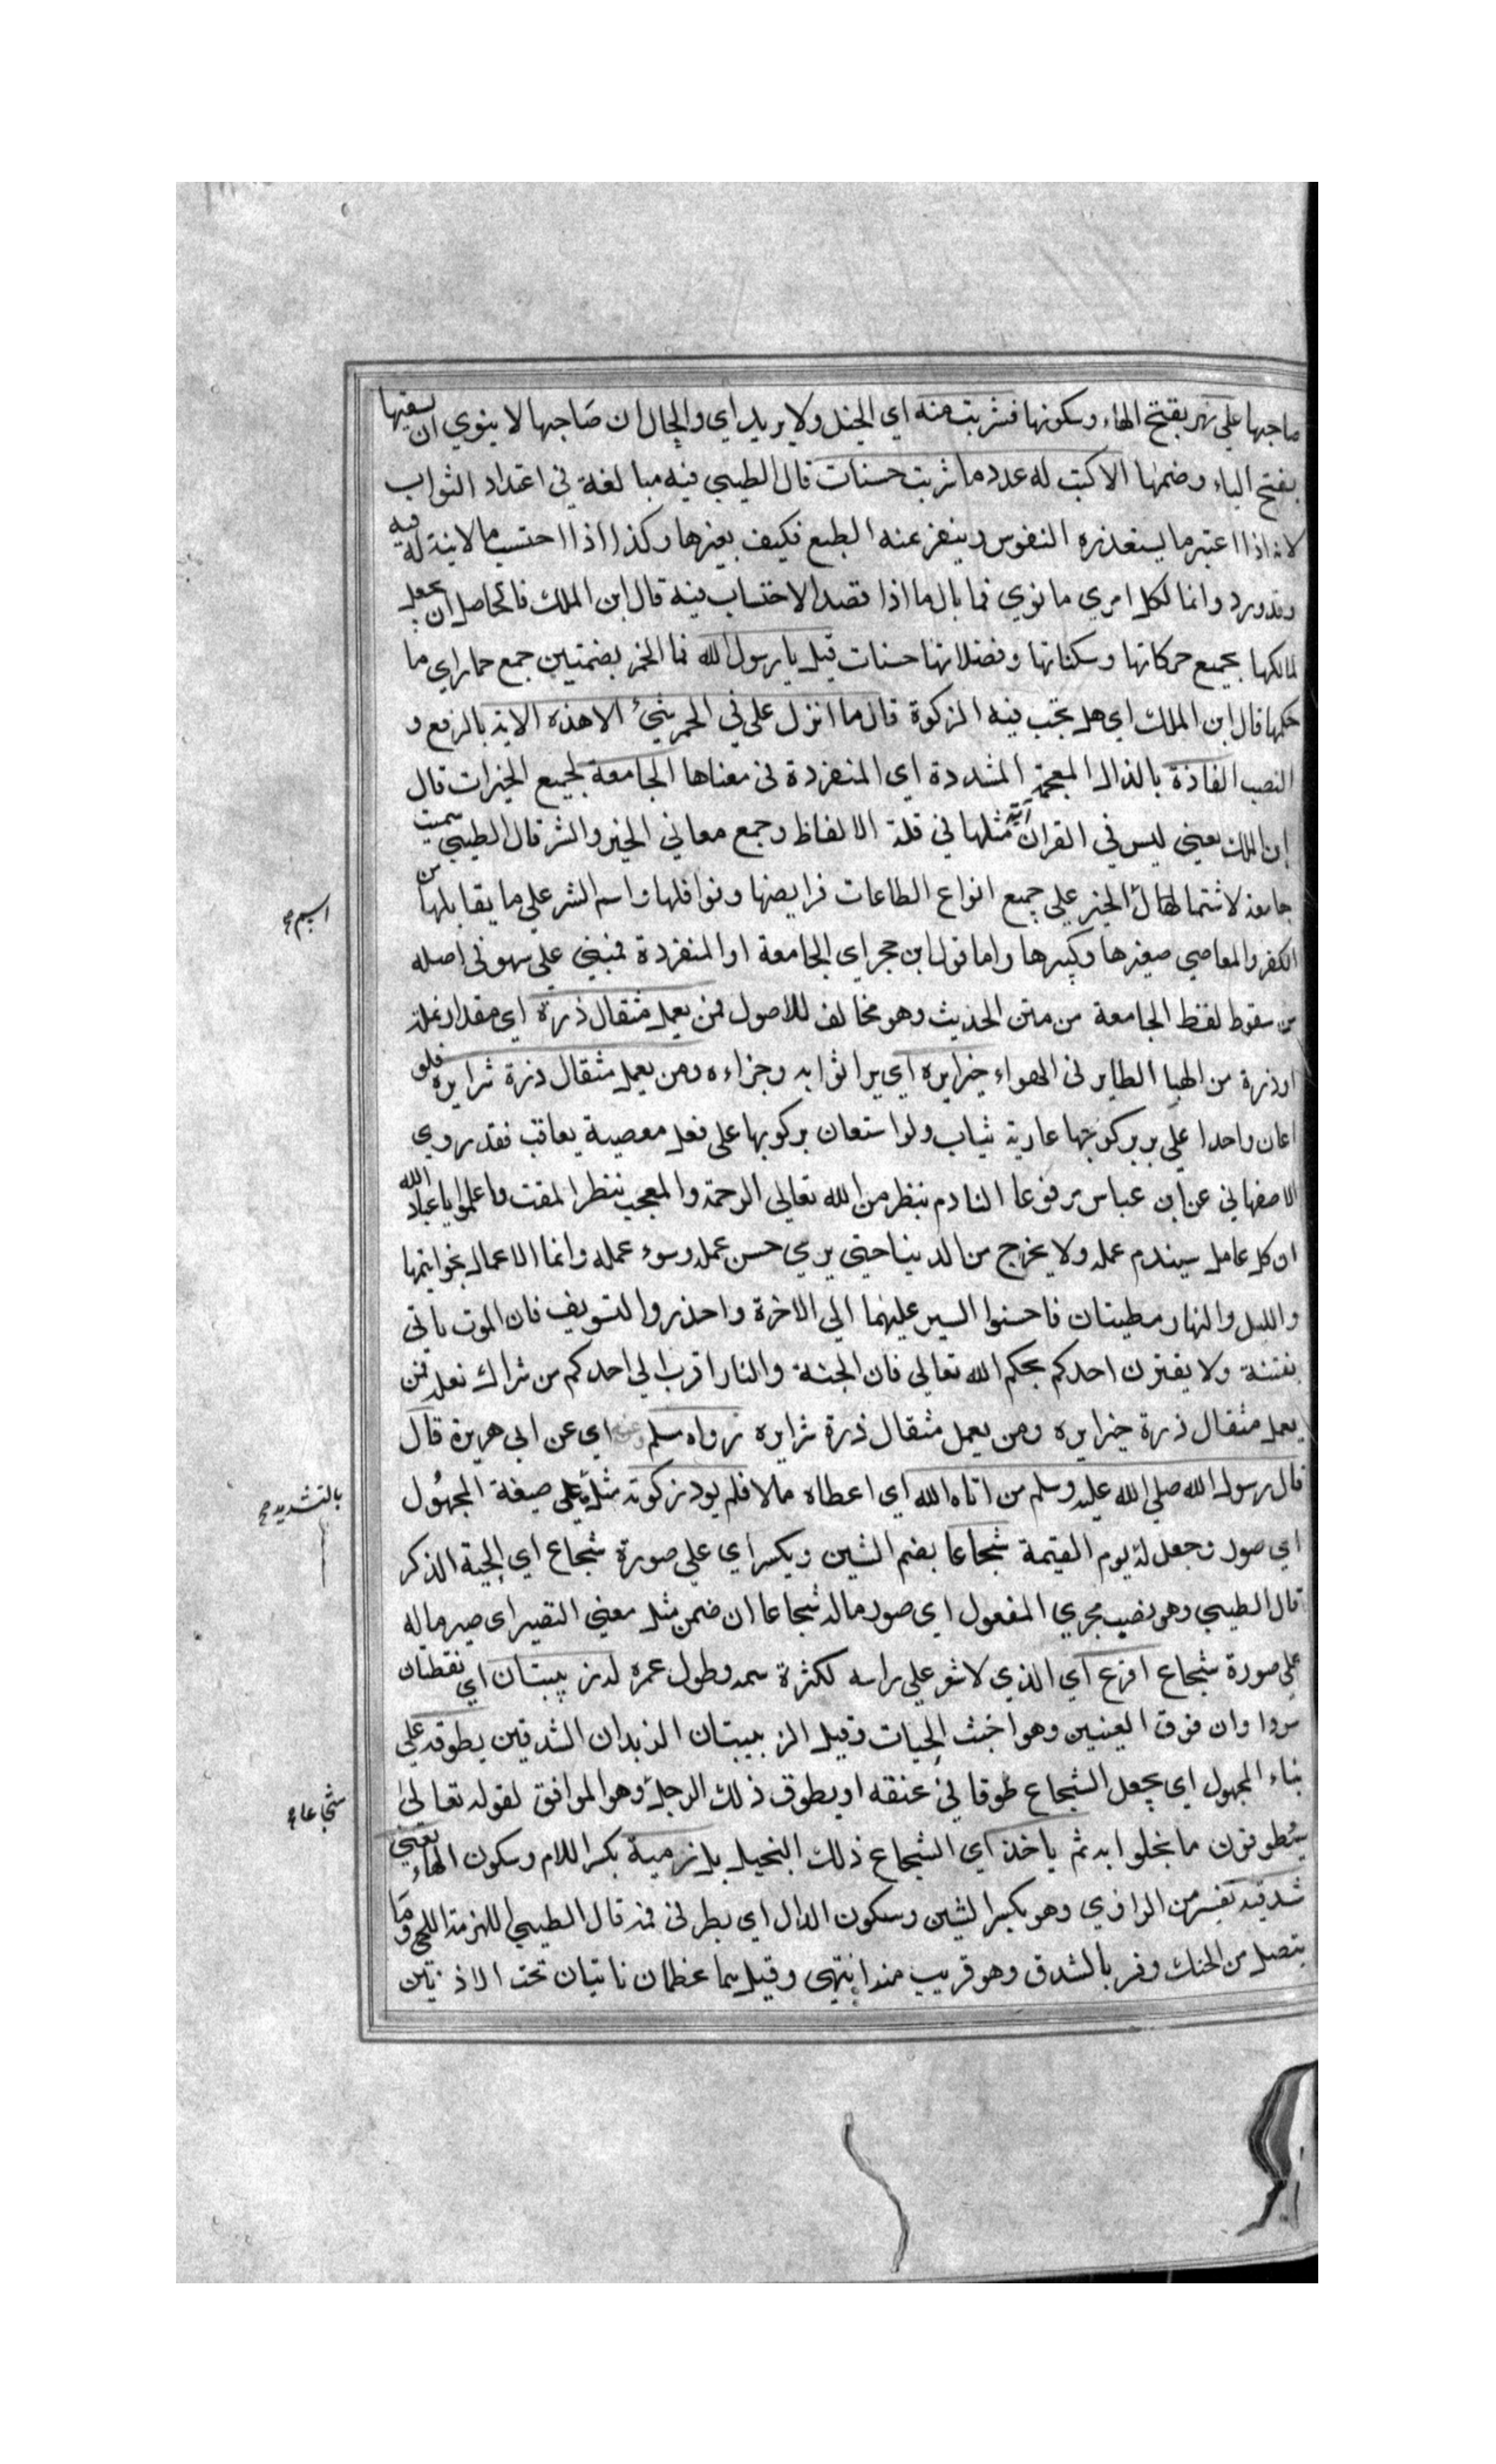 صاحبها علي نهر بفتح الهاء وسكونها فشربت منه اي الخيل ولا يريد اي والحال ان صاحبها لا ينوي ان يسقيها
بفتح الياء وضمها الا كتب له عدد ما شربت حسنات قال الطيبي فيه مبالغة في اعتداد الثواب
لانه اذا اعتبر ما يستقذره النفوس وينفر عنه الطبع فكيف بغيرها وكذا اذا احتسب ما لا نية له فيه
وقد ورد وانما لكل امري ما نوي فما بال ما اذا قصد الاحتساب فيه قال ابن الملك فالحاصل ان يجعل
لمالكها بجميع حركاتها وسكناتها وفضلاتها حسنات قيل يا رسول الله فما الحمر بضمتين جمع حمار اي ما
حكمها قال ابن الملك اي هل تجب فيه الزكوة قال ما انزل علي في الحمر شيئ الا هذه الاية بالرفع و
النصب الفاذة بالذال المعجمة المشددة اي المنفردة في معناها الجامعة لجميع الخيرات قال
ابن الملك يعني ليس في القران آية مثلها في قلة الالفاظ وجمع معاني الخير والشر قال الطيبي سميت
جامعة لاشتمالها الخير علي جميع انواع الطاعات فرايضها ونوافلها واسم الشر علي ما يقابلها من
اسم صح
الكفر والمعاصي صغيرها وكبيرها واما قول ابن حجر اي الجامعة او المنفردة فمبني علي سهو في اصله
من سقوط لفظ الجامعة من متن الحديث وهو مخالف للاصول فمن يعمل مثقال ذرة اي مقدار نملة
او ذرة من الهبا الطاير في الهواء خيرا يره اي ير اثوابه وجزاءه ومن يعمل مثقال ذرة شرا يره فلو
اعان واحدا علي بر بركوبها عارية يثاب ولو استعان بركوبها علي فعل معصية يعاقب فقد روي
الاصفهاني عن ابن عباس مرفوعا النادم ينتظر من الله تعالي الرحمة والمعجب ينتظر المقت واعلموا يا عباد الله
ان كل عامل سيندم عمله ولا يخرج من الدينا حتي يري حسن عمله وسوء عمله وانما الاعمال بخواتيمها
والليل والنهار مطيتان فاحسنوا السير عليهما الي الاخرة واحذروا التسويف فان الموت ياتي
بغتة ولا يغترن احدكم بحكم الله تعالي فان الجنة والنار اقرب الي احدكم من شراك نعله فمن
يعمل مثقال ذرة خيرا يره ومن يعمل مثقال ذرة شرا يره رواه مسلم وعنه اي عن ابي هريرة قال
قال رسول الله صلي الله عليه وسلم من اتاه الله اي اعطاه مالا فلم يود زكوته مثل علي صيغة المجهول
بالتشديد صح
اي صور وجعل له يوم القيمة شجاعا بضم الشين ويكسر اي علي صورة شجاع اي الحية الذكر
قال الطيبي وهو نصيب مجري المفعول اي صور ماله شجاعا ان ضمن مثل معني التصير اي صير ماله
علي صورة شجاع اقرع اي الذي لا شعر علي راسه لكثرة سمه وطول عمره له زبيبتان اي نقطتان
سوداوان فوق العينين وهو اخبث الحيات وقيل الزبيبتان الزبدان الشدقين يطوقه علي
بناء المجهول اي يجعل الشجاع طوقا في عنقه او يطوق ذلك الرجل وهو الموافق لقوله تعالي
شجاعا صح
سيطوقون ما بخلوا به ثم ياخذ اي الشجاع ذلك البخيل بلهزميه بكسر اللام وسكون الهاء يعني
شدقيه تفسير من الراوي وهو بكسر الشين وسكون الدال اي بطرفي فمه قال الطيبي اللهزمة اللحي وما
يتصل من الحنك وفسر بالشدق وهو قريب منه انتهي وقيل هما عظمان ناتيان تحت الاذنين